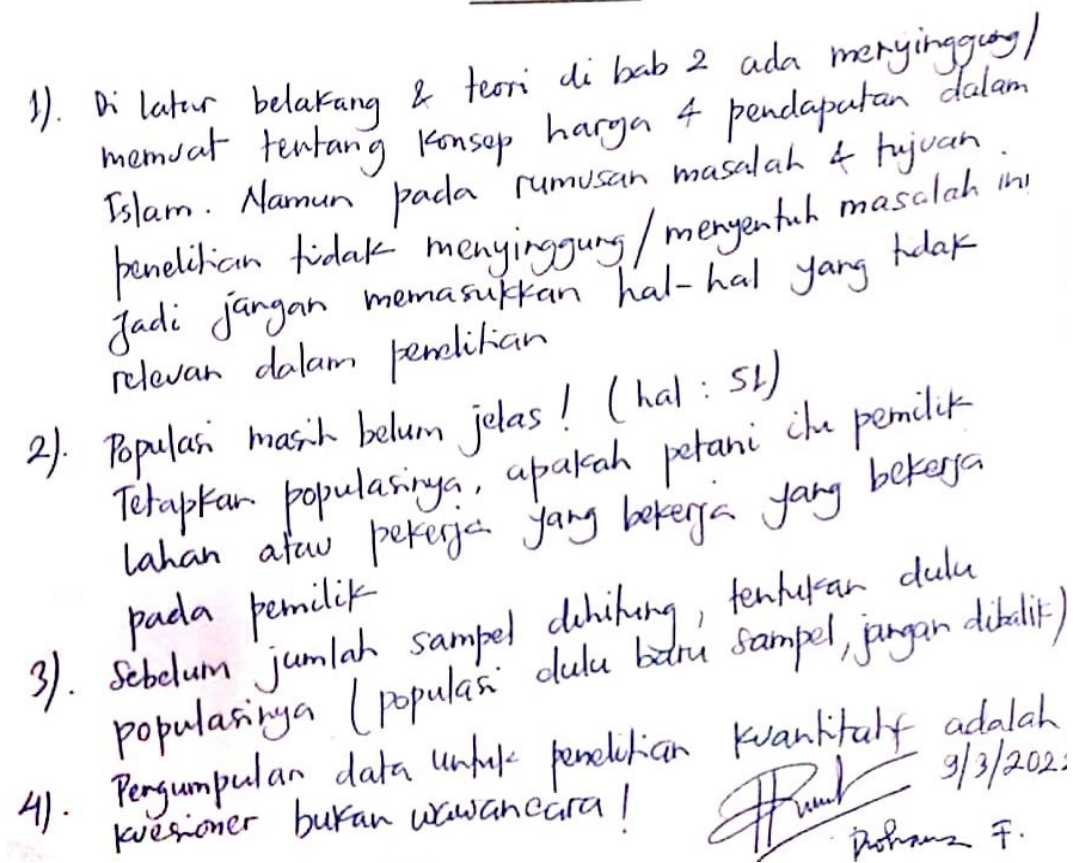 1). Di latar belakang & teori di bab 2 ada menyinggung/
memuat tentang konsep harga & pendapatan dalam
Islam. Namun pada rumusan masalah & tujuan
penelitian tidak menyinggung/menyentuh masalah ini.
Jadi jangan memasukkan hal-hal yang tidak
relevan dalam penelitian
2). Populasi masih belum jelas! (hal: 51)
Tetapkan populasinya, apakah petani itu pemilik
lahan atau pekerja yang bekerja yang bekerja
pada pemilik
3). Sebelum jumlah sampel dihitung, tentukan dulu
populasinya (populasi dulu baru sampel, jangan dibalik)
4). Pengumpulan data untuk penelitian kuantitatif adalah
kuesioner bukan wawancara!
9/3/202
F.